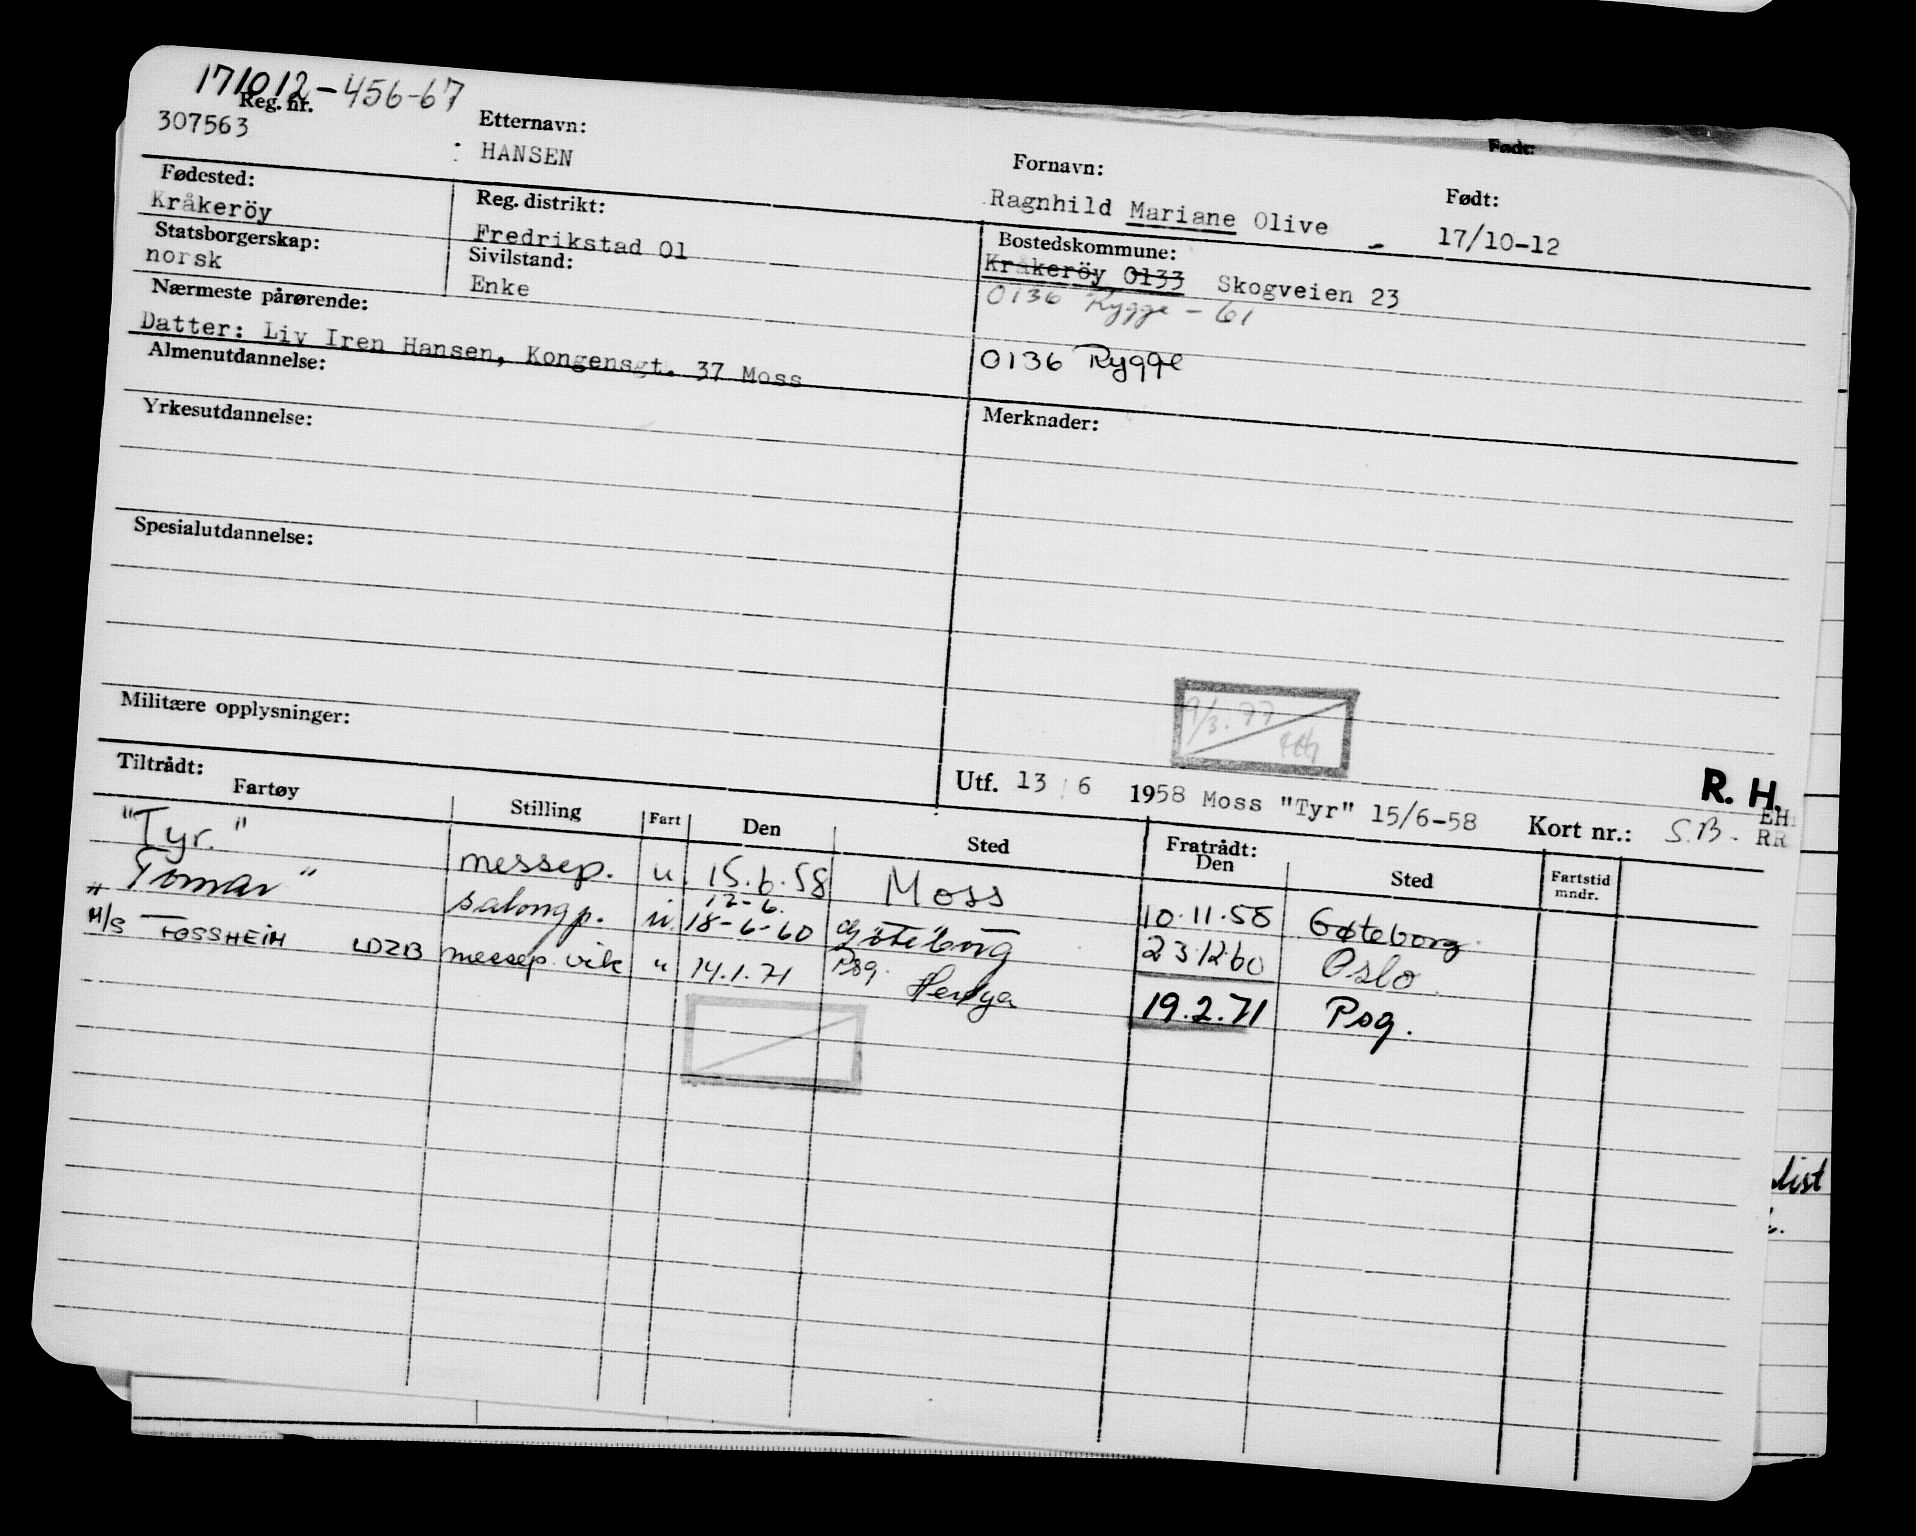 171012-456-67
Reg. nr.
307563
Etternavn:
HANSEN
Fornavn:
Ragnhild Mariane Olive -
Født:
Født:
17/10-12
Fødested:
Kråkeröy
Reg. distrikt:
Fredrikstad 01
Bostedskommune:
Kråkeröy 0133 Skogveien 23
0136 Rygge - 61
0136 Rygge
Statsborgerskap:
norsk
Sivilstand:
Enke
Nærmeste pårørende:
Datter: Liv Iren Hansen, Kongensgt. 37 Moss
Almenutdannelse:
Yrkesutdannelse:
Merknader:
Spesialutdannelse:
Militære opplysninger:
9/3. 77
R. H.
Utf. 13 6 1958 Moss "Tyr" 15/6-58 Kort nr.: S.B. EH
RR
Tiltrådt:
Fartøy Stilling Fart Den Sted Fratrådt: Den Sted Fartstid mndr.
"Tyr." messep. u 15.6.58 Moss 10.11.58 Gøteborg
12-6.
"Tomar" salongp. u 18-6-60 Göteborg 23.12.60 Oslo
M/S FOSSHEIM LDZB messep. vik " 14.1.71 Psg. 19.2.71 Psg.
list